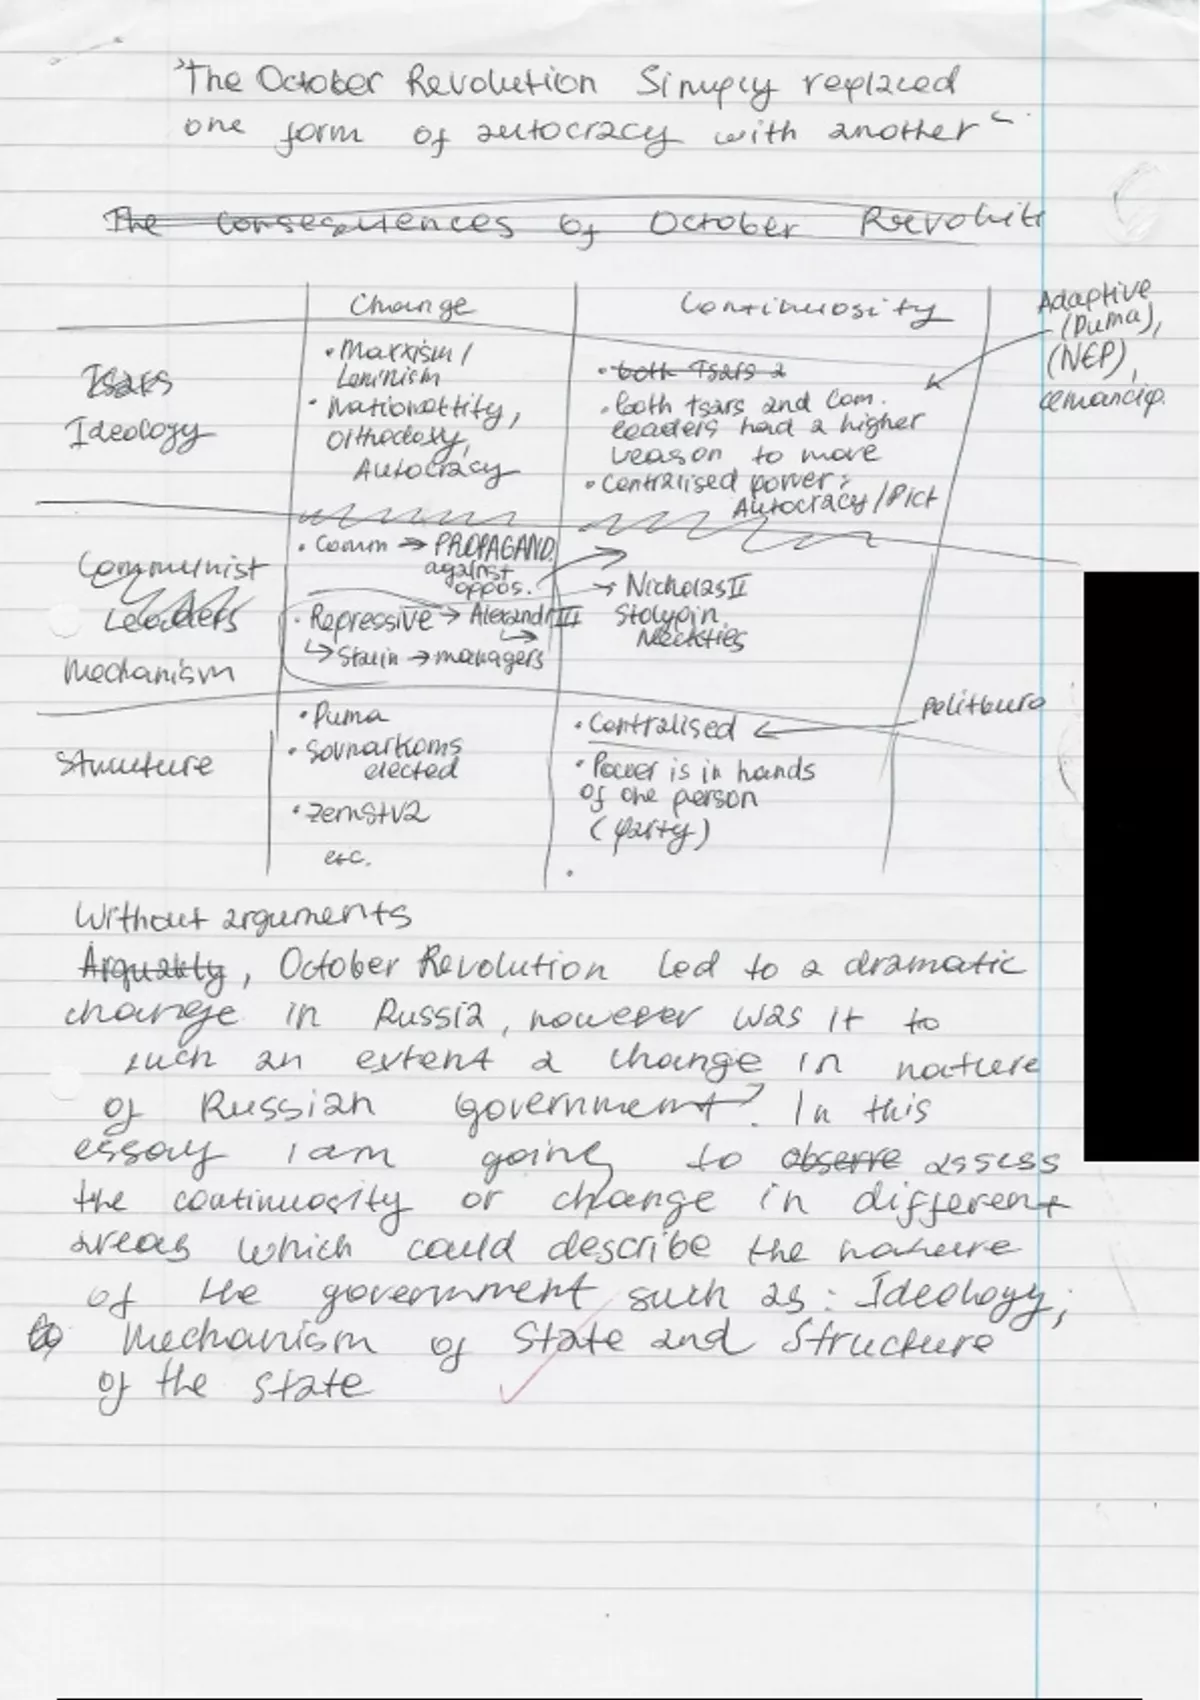 "The October Revolution Simply replaced
one form of autocracy with another"
The Consequences of October Revoluti
Change
Continuosity
Adaptive
(Duma),
(NEP),
emancip.
Tsars
Ideology
• Marxism /
Leninism
• Nationality,
Orthodoxy,
Autocracy
• both Tsars a
• both tsars and com.
leaders had a higher
reason to move
• Centralised power:
Autocracy/Dict
Communist
Leaders
Mechanism
• Comm → PROPAGAND
against
oppos.
• Repressive → Alexandr III
↳ Stalin → managers
→ Nicholas II
Stolypin
Neckties
Structure
• Duma
• Sovnarkoms
elected
• Zemstva
etc.
• Centralised
• Power is in hands
of one person
(party)
•
politburo
Without arguments
Arguably, October Revolution led to a dramatic
change in Russia, however was it to
such an extent a change in nature
of Russian government? In this
essay I am going to observe assess
the continuosity or change in different
areas which could describe the nature
of the government such as: Ideology;
Mechanism of State and Structure
of the state